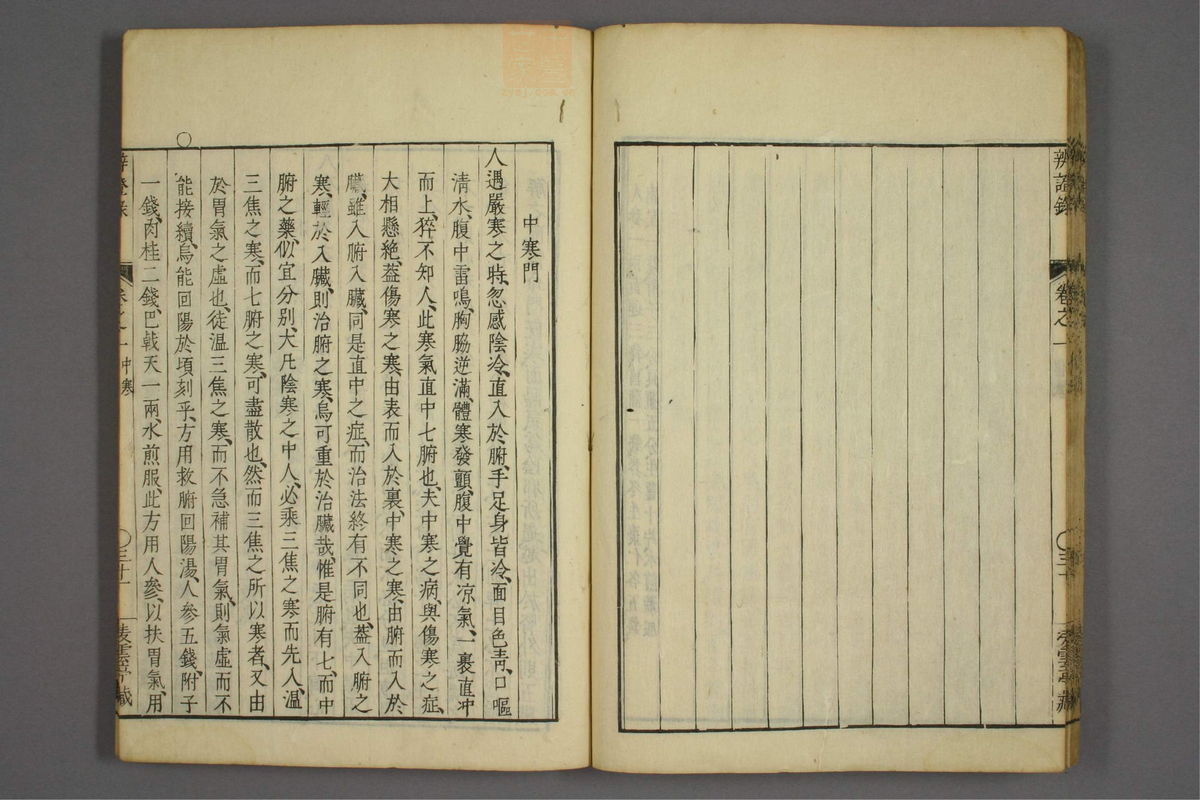 辨證錄 卷之一
中寒門
人遇嚴寒之時、忽感陰冷、直入於腑、手足身皆冷、面目色靑、口嘔
清水、腹中雷鳴、胸脇逆滿、體寒發顫、腹中覺有凉氣、一裹直冲
而上、猝不知人、此寒氣直中七腑也、夫中寒之病、與傷寒之症、
大相懸絶、葢傷寒之寒、由表而入於裏、中寒之寒、由腑而入於
臟、雖入腑入臟、同是直中之症、而治法終有不同也、葢入腑之
寒、輕於入臟、則治腑之寒、烏可重於治臟哉、惟是腑有七、而中
腑之藥、似宜分別、大凡陰寒之中人、必乘三焦之寒而先入、溫
三焦之寒、而七腑之寒、可盡散也、然而三焦之所以寒者、又由
於胃氣之虛也、徒溫三焦之寒、而不急補其胃氣、則氣虛而不
能接續、烏能回陽於頃刻乎、方用救腑回陽湯、人參五錢、附子
一錢、肉桂二錢、巴戟天一兩、水煎服、此方用人參、以扶胃氣、用
辨證錄 卷之一 中寒 三十一